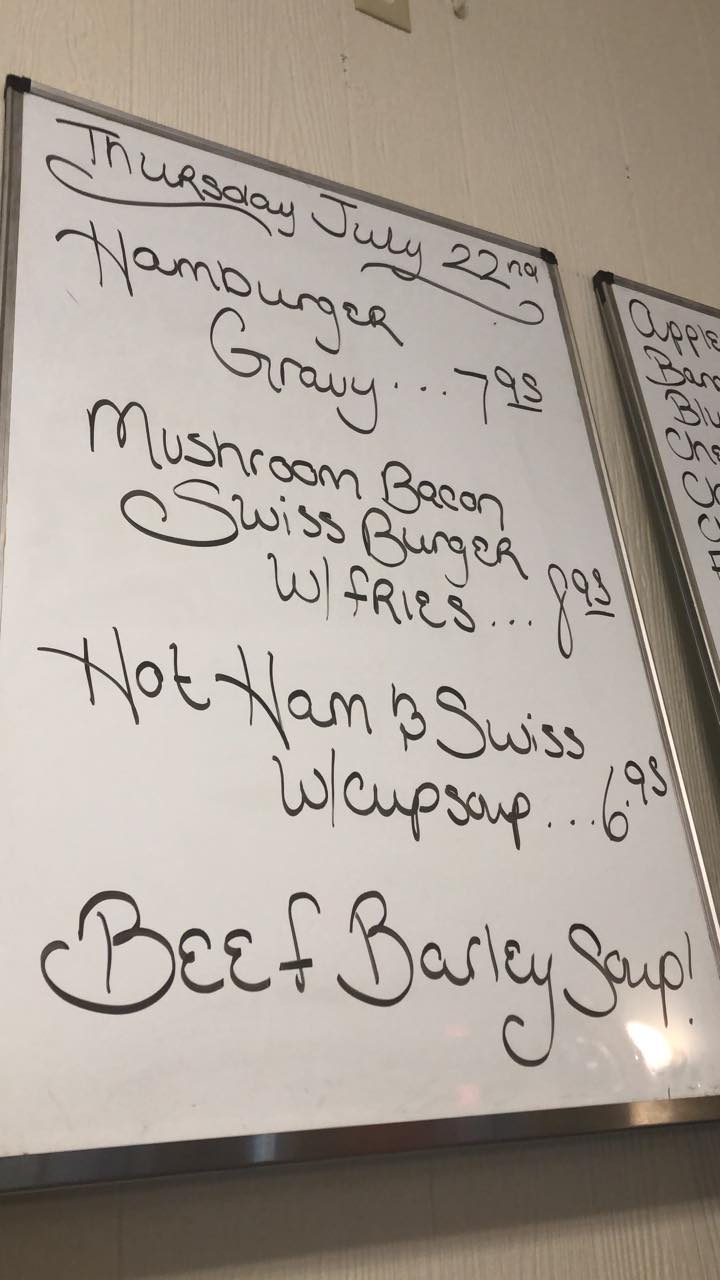 Thursday July 22nd
Hamburger
Gravy... 7.95
Mushroom Bacon
Swiss Burger
W/fRIES... 8.95
Hot Ham & Swiss
W/cup soup... 6.95
BEEf Barley Soup!
Apple